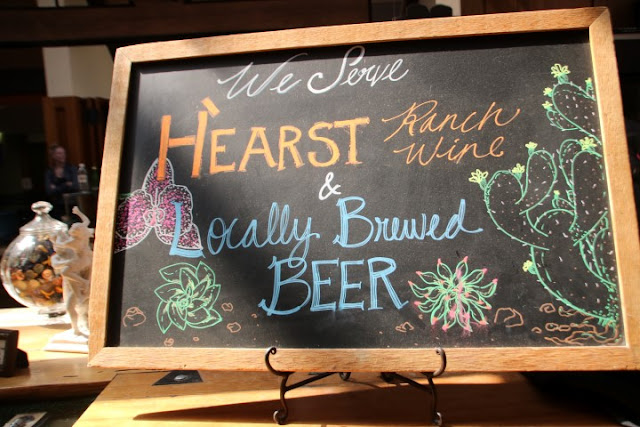 We Serve
HEARST Ranch Wine
&
Locally Brewed
BEER